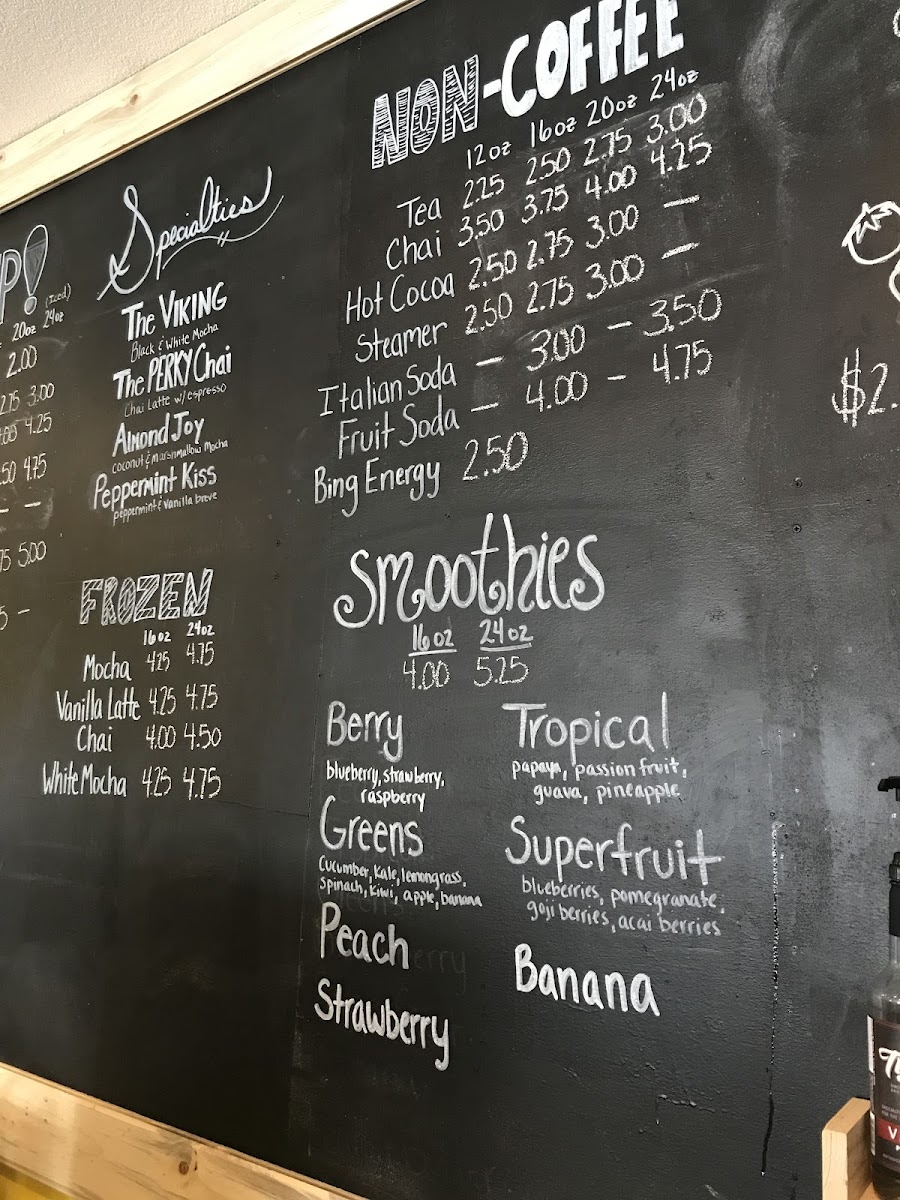 P!
(Iced)
20oz 24oz
2.00
2.75 3.00
4.00 4.25
.50 4.75
— —
75 5.00
5 —
Specialties
The VIKING
Black & White Mocha
The PERKY Chai
Chai Latte w/espresso
Almond Joy
coconut & marshmallow Mocha
Peppermint Kiss
peppermint & vanilla breve
FROZEN
16oz 24oz
Mocha 4.25 4.75
Vanilla Latte 4.25 4.75
Chai 4.00 4.50
White Mocha 4.25 4.75
NON-COFFEE
12oz 16oz 20oz 24oz
Tea 2.25 2.50 2.75 3.00
Chai 3.50 3.75 4.00 4.25
Hot Cocoa 2.50 2.75 3.00 —
Steamer 2.50 2.75 3.00 —
Italian Soda — 3.00 — 3.50
Fruit Soda — 4.00 — 4.75
Bing Energy 2.50
Smoothies
16oz 24oz
4.00 5.25
Berry
blueberry, strawberry,
raspberry
Greens
Cucumber, Kale, lemongrass,
Spinach, Kiwi, apple, banana
Peach
Strawberry
Tropical
papaya, passion fruit,
guava, pineapple
Superfruit
blueberries, pomegranate,
goji berries, acai berries
Banana
$2.